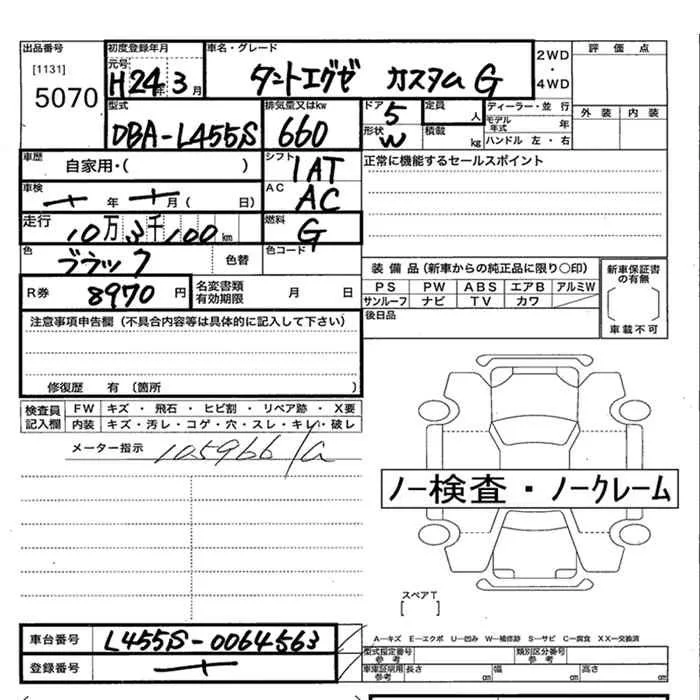 出品番号 初度登録年月 車名・グレード 2WD・4WD 評価点
[1131] 元号
5070 H24年3月 タントエグゼ カスタム G
型式 排気量又はkw ドア 定員 ディーラー・並行 外装 内装
DBA-L455S 660 5 人 モデル年式 年
形状 W 積載 kg ハンドル 左・右
車歴 自家用・( ) シフト IAT 正常に機能するセールスポイント
車検 年 月( 日) AC AC
走行 10万3千100km 燃料 G
色 ブラック 色替 色コード
装備品(新車からの純正品に限り○印) 新車保証書の有無
R券 8970円 名変書類有効期限 月 日
PS PW ABS エアB アルミW
サンルーフ ナビ TV カワ
車載不可
注意事項申告欄(不具合内容等は具体的に記入して下さい) 後日品
修復歴 有(箇所 )
検査員記入欄 FW キズ・飛石・ヒビ割・リペア跡・X要
内装 キズ・汚レ・コゲ・穴・スレ・キレ・破レ
メーター指示 105966
ノー検査・ノークレーム
スペアT
[ ]
A―キズ E―エクボ U―凹み W―補修跡 S―サビ C―腐食 XX―交換済
車台番号 L455S-0064563 型式指定番号参考 類別区分番号参考
登録番号 車庫証明用参考 長さ cm 幅 cm 高さ cm